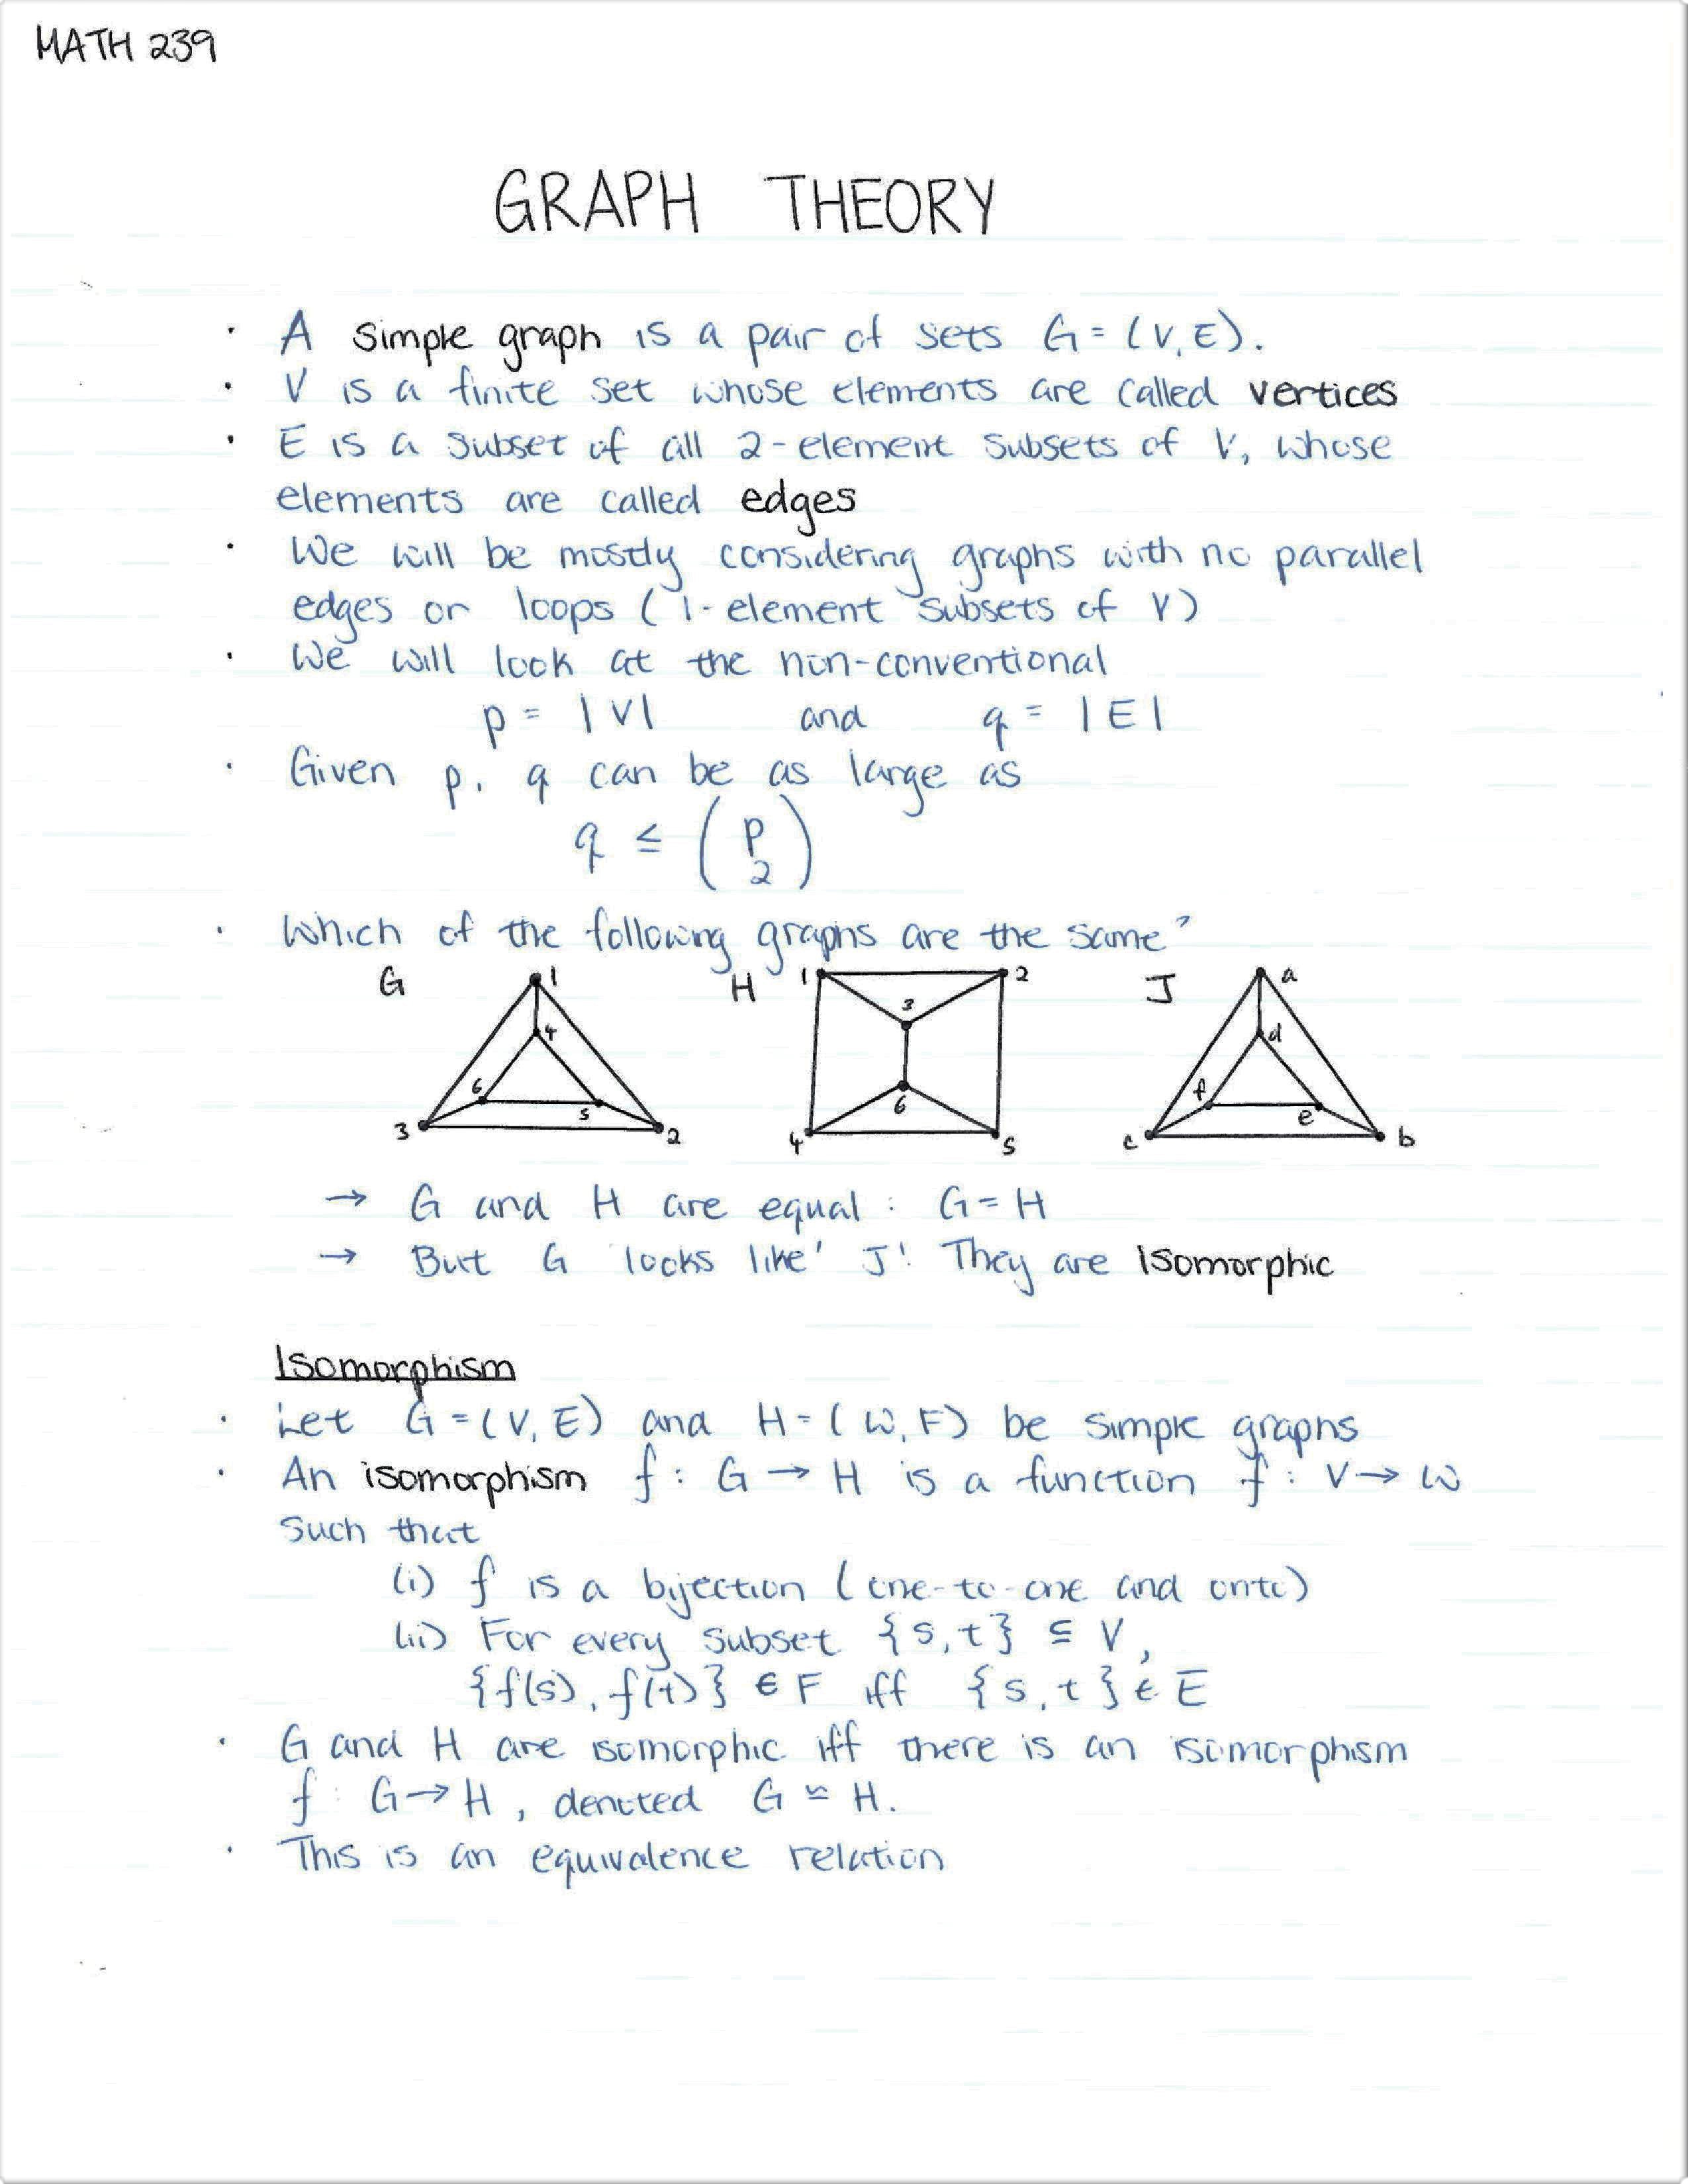 MATH 239
GRAPH THEORY
· A simple graph is a pair of sets G = (V, E).
· V is a finite set whose elements are called vertices
· E is a subset of all 2-element subsets of V, whose
elements are called edges
· We will be mostly considering graphs with no parallel
edges or loops (1-element subsets of V)
· We will look at the non-conventional
p = |V| and q = |E|
· Given p, q can be as large as
q ≤ (p 2)
· Which of the following graphs are the same?
G 1 4 6 5 3 2
H 1 2 3 6 4 5
J a d f e c b
→ G and H are equal: G = H
→ But G 'looks like' J! They are isomorphic
Isomorphism
· Let G = (V, E) and H = (W, F) be simple graphs
· An isomorphism f: G → H is a function f: V → W
such that
(i) f is a bijection (one-to-one and onto)
(ii) For every subset {s, t} ⊆ V,
{f(s), f(t)} ∈ F iff {s, t} ∈ E
· G and H are isomorphic iff there is an isomorphism
f: G → H, denoted G ≃ H.
· This is an equivalence relation